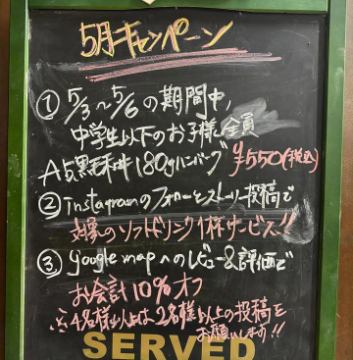 5月キャンペーン
① 5/3〜5/6の期間中,
中学生以下のお子様全員
A5黒毛和牛180gハンバーグ ¥550(税込)
② instagramのフォローとストーリー投稿で
対象のソフトドリンク1杯サービス!!
③ google mapへのレビュー&評価で
お会計10%オフ
※4名様以上は2名様以上の投稿を
お願いします!!
SERVED